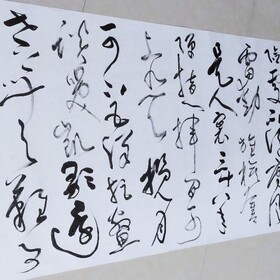 险处不须看风
雷动旌旗奋
是人寰三十八年
弹指一挥间
上九天揽月
可下五洋捉鳖
谈笑凯歌还
世上无难事